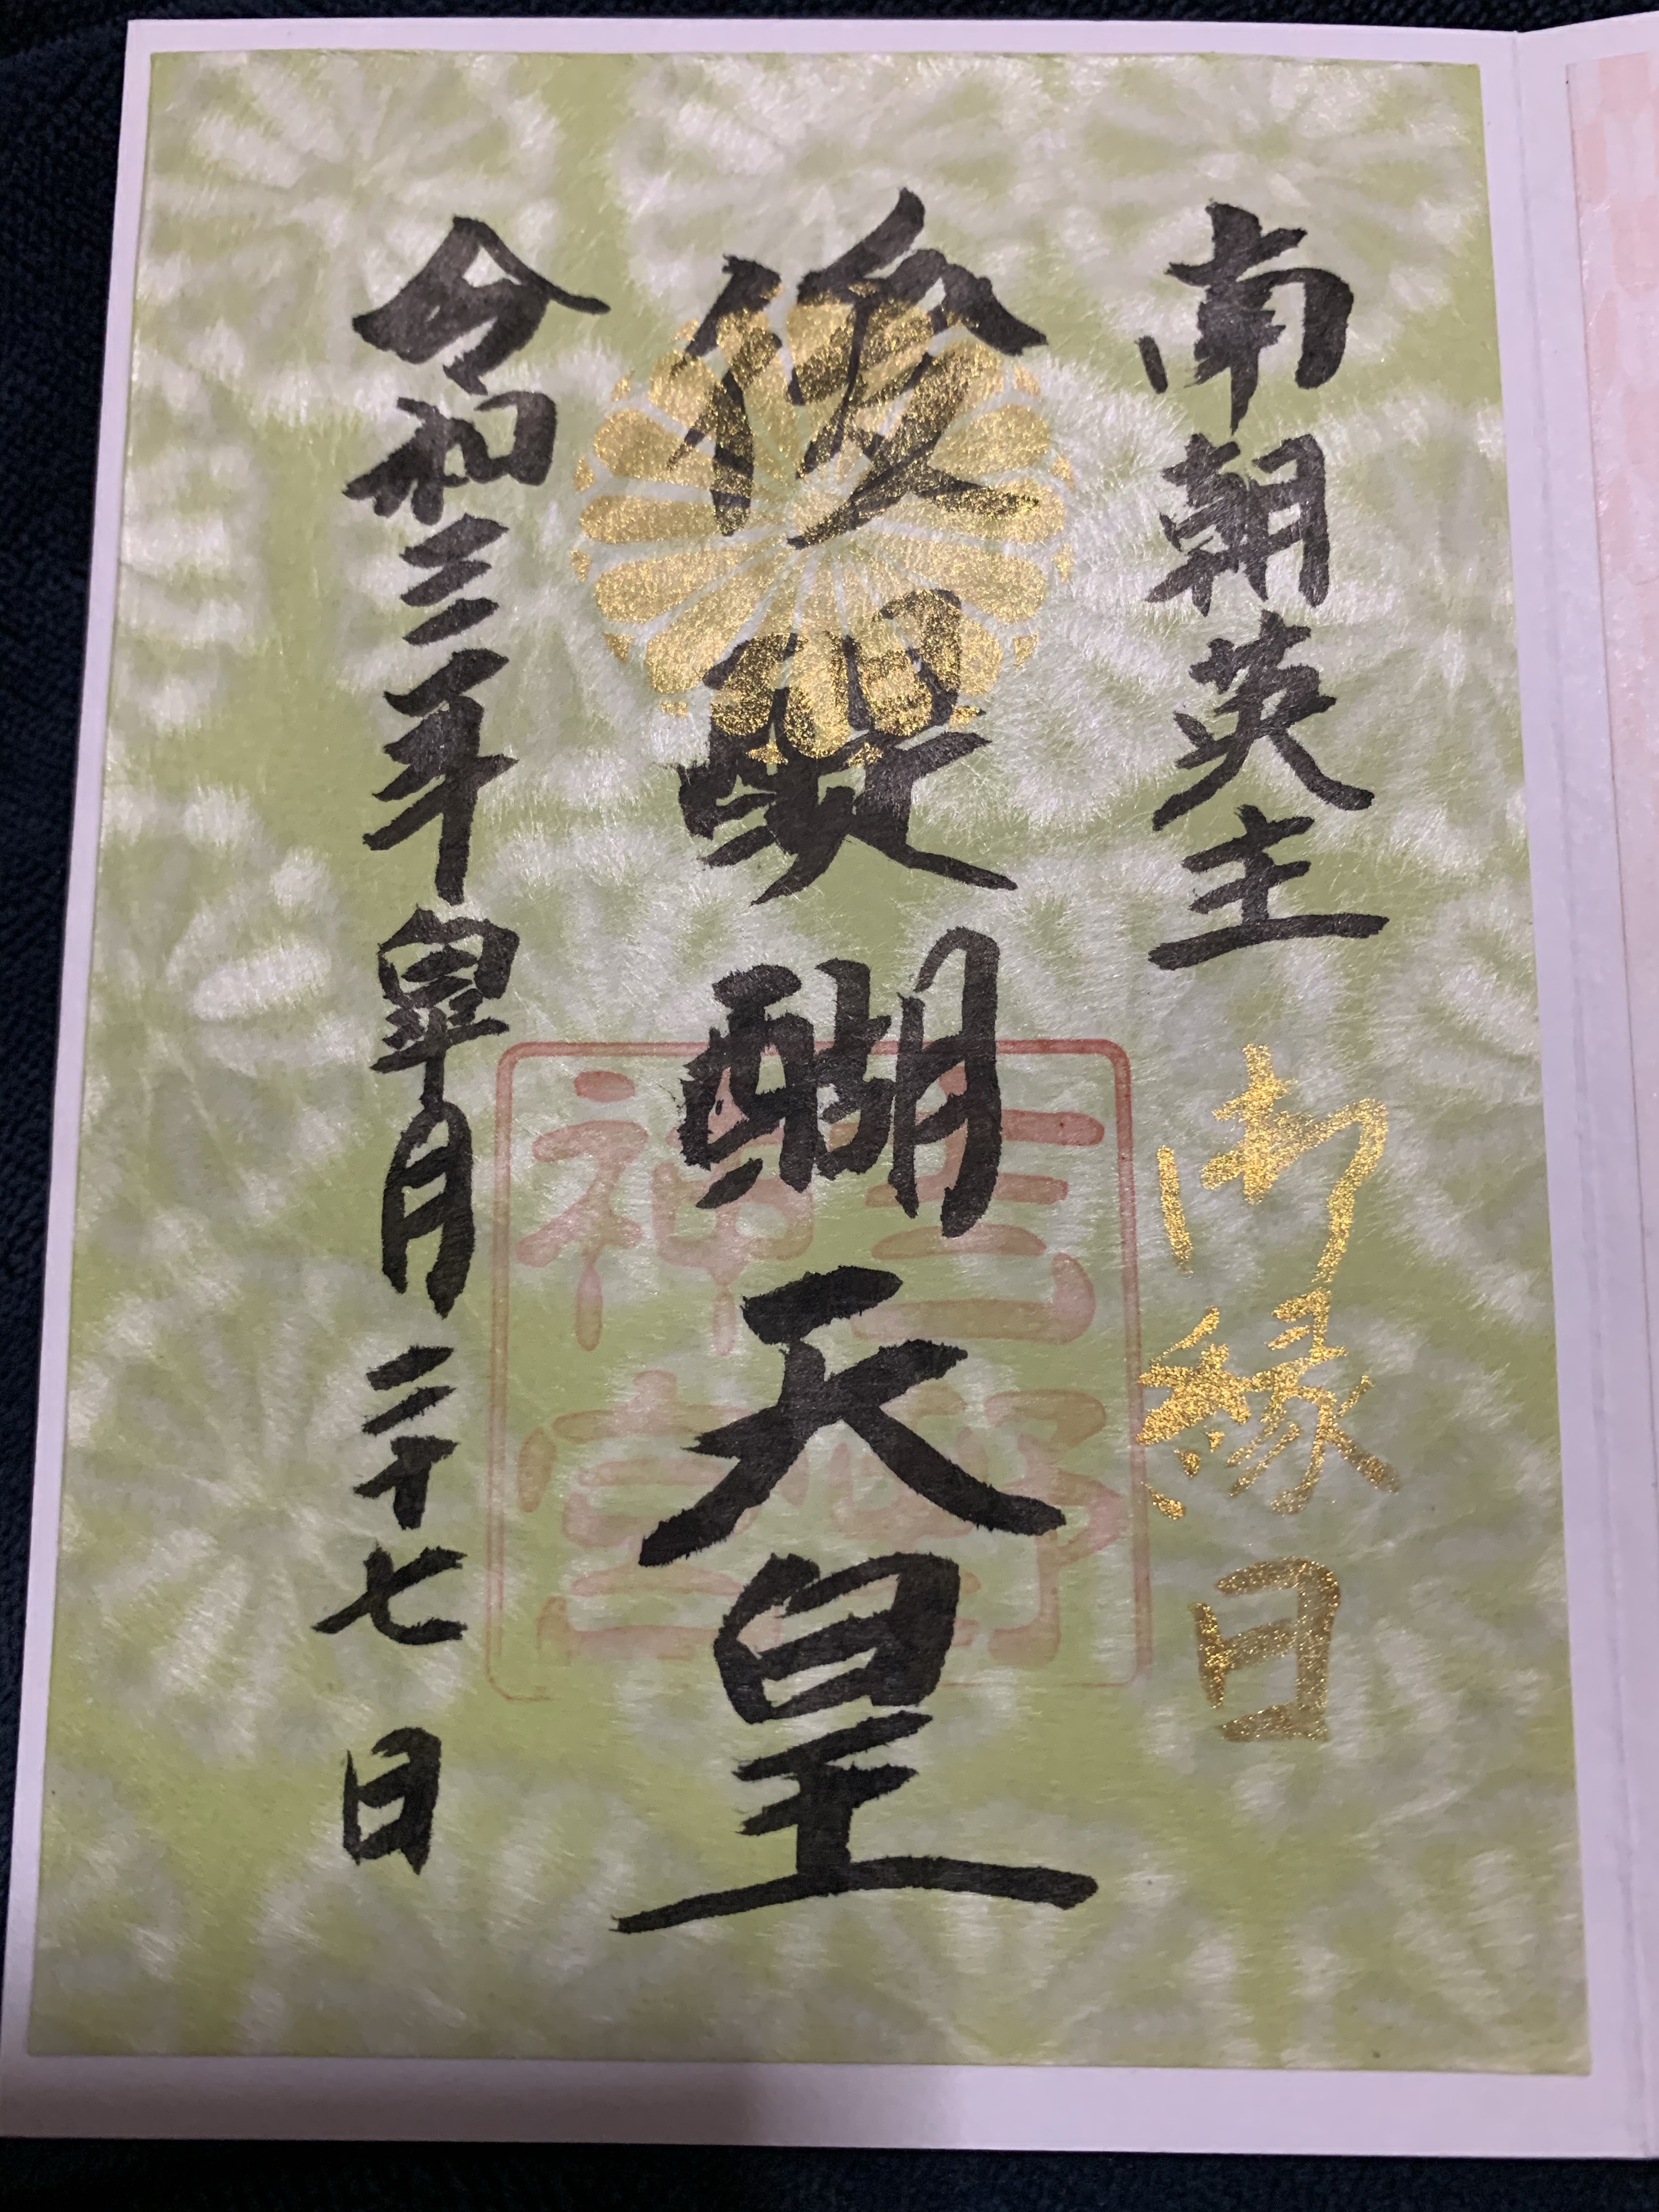 南朝英主 御縁日
後醍醐天皇
吉野
神宮
令和三年皐月二十七日